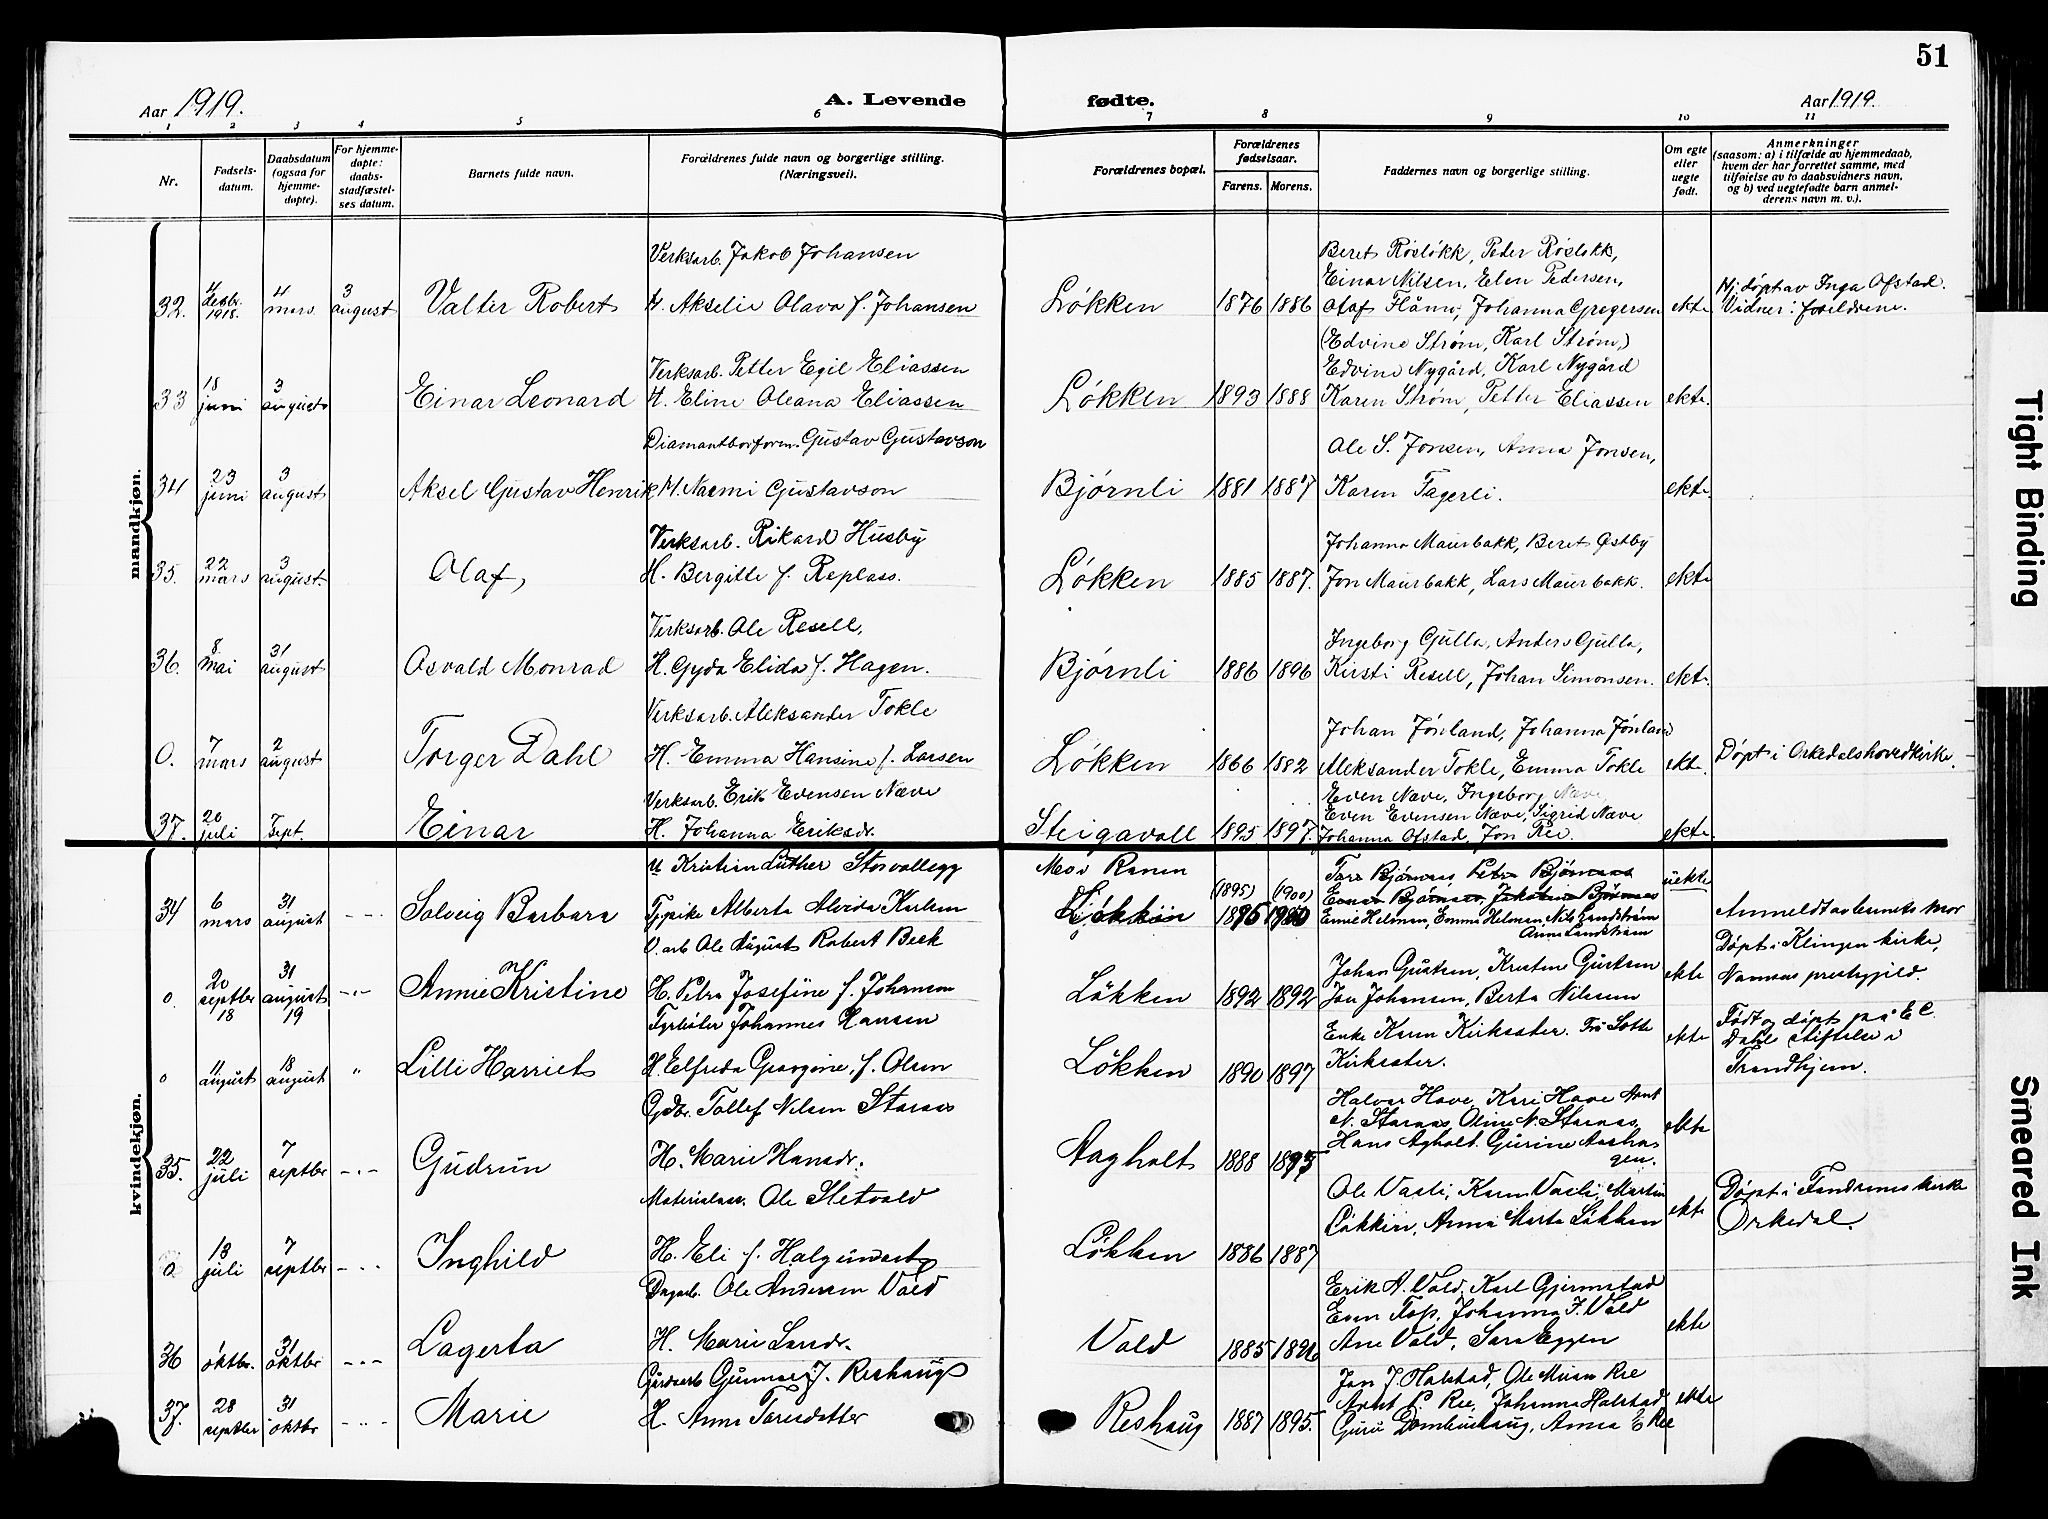 51
Aar 1919. A. Levende fødte. Aar 1919.
1 2 3 4 5 6 7 8 9 10 11
Nr.
Fødsels-
datum.
Daabsdatum
(ogsaa for
hjemme-
døpte).
For hjemme-
døpte:
daabs-
stadfæstel-
ses datum.
Barnets fulde navn.
Forældrenes fulde navn og borgerlige stilling.
(Næringsvei).
Forældrenes bopæl.
Forældrenes
fødselsaar.
Farens. Morens.
Faddernes navn og borgerlige stilling.
Om egte
eller
uegte
født.
Anmerkninger
(saasom: a) i tilfælde av hjemmedaab,
hvem der har forrettet samme, med
tilføielse av to daabsvidners navn,
og b) ved uegtefødte barn anmel-
derens navn m. v.).
mandkjøn.
32. 4 desbr. 1918. 4 mars 3 august Valter Robert
Verksarb. Jakob Johansen
H. Akselie Olava f. Johansen
Løkken 1876 1886
Beret Røsløkk, Peder Røsløkk,
Einar Nilsen, Elen Pedersen,
Olaf Flåmo, Johanna Gregersen
ekte
Hj. døpt av Inga Ofstad.
Vidner: foreldrene.
33 18 juni 3 august Einar Leonard
Verksarb. Petter Egil Eliassen
H. Eline Oleana Eliassen
Løkken 1893 1888
(Edvine Strøm, Karl Strøm,)
Edvine Nygård, Karl Nygård
Karen Strøm, Petter Eliassen
ekte.
34 23 juni 3 august Aksel Gustav Henrik
Diamantborform. Gustav Gustavson
H. Naemi Gustavson
Bjørnli 1881 1887
Ole S. Jonsen, Anna Jonsen,
Karen Fagerli.
ekte.
35. 22 mars 3 august Olaf,
Verksarb. Rikard Husby
H. Bergitte f. Replass.
Løkken 1885 1887.
Johanna Maurbakk, Beret Østby
Jon Maurbakk, Lars Maurbakk.
ekte
36. 8. mai 31 august Osvald Monrad
Verksarb. Ole Resell,
H. Gyda Elida f. Hagen.
Bjørnli 1886 1896
Ingeborg Gulla, Anders Gulla,
Kirsti Resell, Johan Simonsen.
ekte.
0. 7 mars 2 august Torger Dahl
Verksarb. Aleksander Tokle
H. Emma Hansine f. Larsen
Løkken 1866 1882
Johan Jønland, Johanna Jønland
Aleksander Tokle, Emma Tokle
ekte.
Døpt i Orkedalshovedkirke.
37. 20 juli 7 sept. Einar
Verksarb. Erik Evensen Næve
H. Johanna Eriksdr.
Steigavoll 1895 1897.
Even Næve, Ingeborg Næve,
Even Evensen Næve, Sigrid Næve
Johanna Ofstad, Jon Ree.
ekte.
kvindekjøn.
34 6 mars 31 august Solveig Barbara
U Kristian Luther Storvollegg
Tjpike Alberta Alvida Karlsen
Mosv Ranen
Løkken (1895) (1900) 1895 1900
Tora Bjørnaas Petra Bjørnaas
Einar Bjørnaas, Jakobine Bjørnaas
Emil Helman, Emma Helman Nils Landstrøm
Anne Landstrøm
uekte
Anmeldt av barnets mor
0. 20 septbr 18 31 august 19 Annie Kristine
V. arb Ole August Robert Beck
H. Petra Josefine f. Johansen
Løkken 1892 1892
Johan Gustsen, Kristine Gustsen
Jon Johansen, Berta Nilssen
ekte
Døpt i Klingen kirke,
Namsos prestegjeld.
0 11 august 18 august " Lilli Harriet
Fyrbøter Johannes Hansen
H. Elfreda Georgine, f. Olsen
Løkken 1890 1897
Enke Karen Kirksæter. Frk Lotte
Kirksæter.
ekte
Født og døpt på E. C.
Dahls stiftelse i
Trondhjem.
35. 22 juli 7 septbr Gudrun
Gdbr. Tollef Nilsen Starnas
H. Marie Hansdr.
Aagholt 1888 1895
Halvor Hove, Kari Hove Arnt
N. Starnas, Oline N. Starnas,
Hans Agholt. Gurine Aashau-
gen.
ekte
0 13 juli 7 septbr Inghild
Materialass. Ole Sletvold
H. Eli f. Halgunset
Løkken 1886 1887
Ole Vasli, Karen Vasli, Martin
Løkken, Anna Marta Løkken
ekte
Døpt i Fandremes kirke
Orkedal.
36 1 oktbr. 31 oktbr Lagerta
Dagarb. Ole Andersen Vold
H. Marie Larsdr.
Vold 1885 1896
Erik A. Vold, Karl Gjermstad
Even Fop, Johanna J. Vold
Ane Vold, Sara Eggen
ekte
37. 28 septbr 31 oktbr Marie
Gårdsarb Gunnar J. Reshaug
H. Anne Toresdatter
Reshaug 1887 1895.
Jon J. Holstad, Ole Muan Ree
Arnt P. Ree, Johanna Holstad
Guru Dombushaug, Anna E Ree
ekte
Tight Binding
Smeared Ink